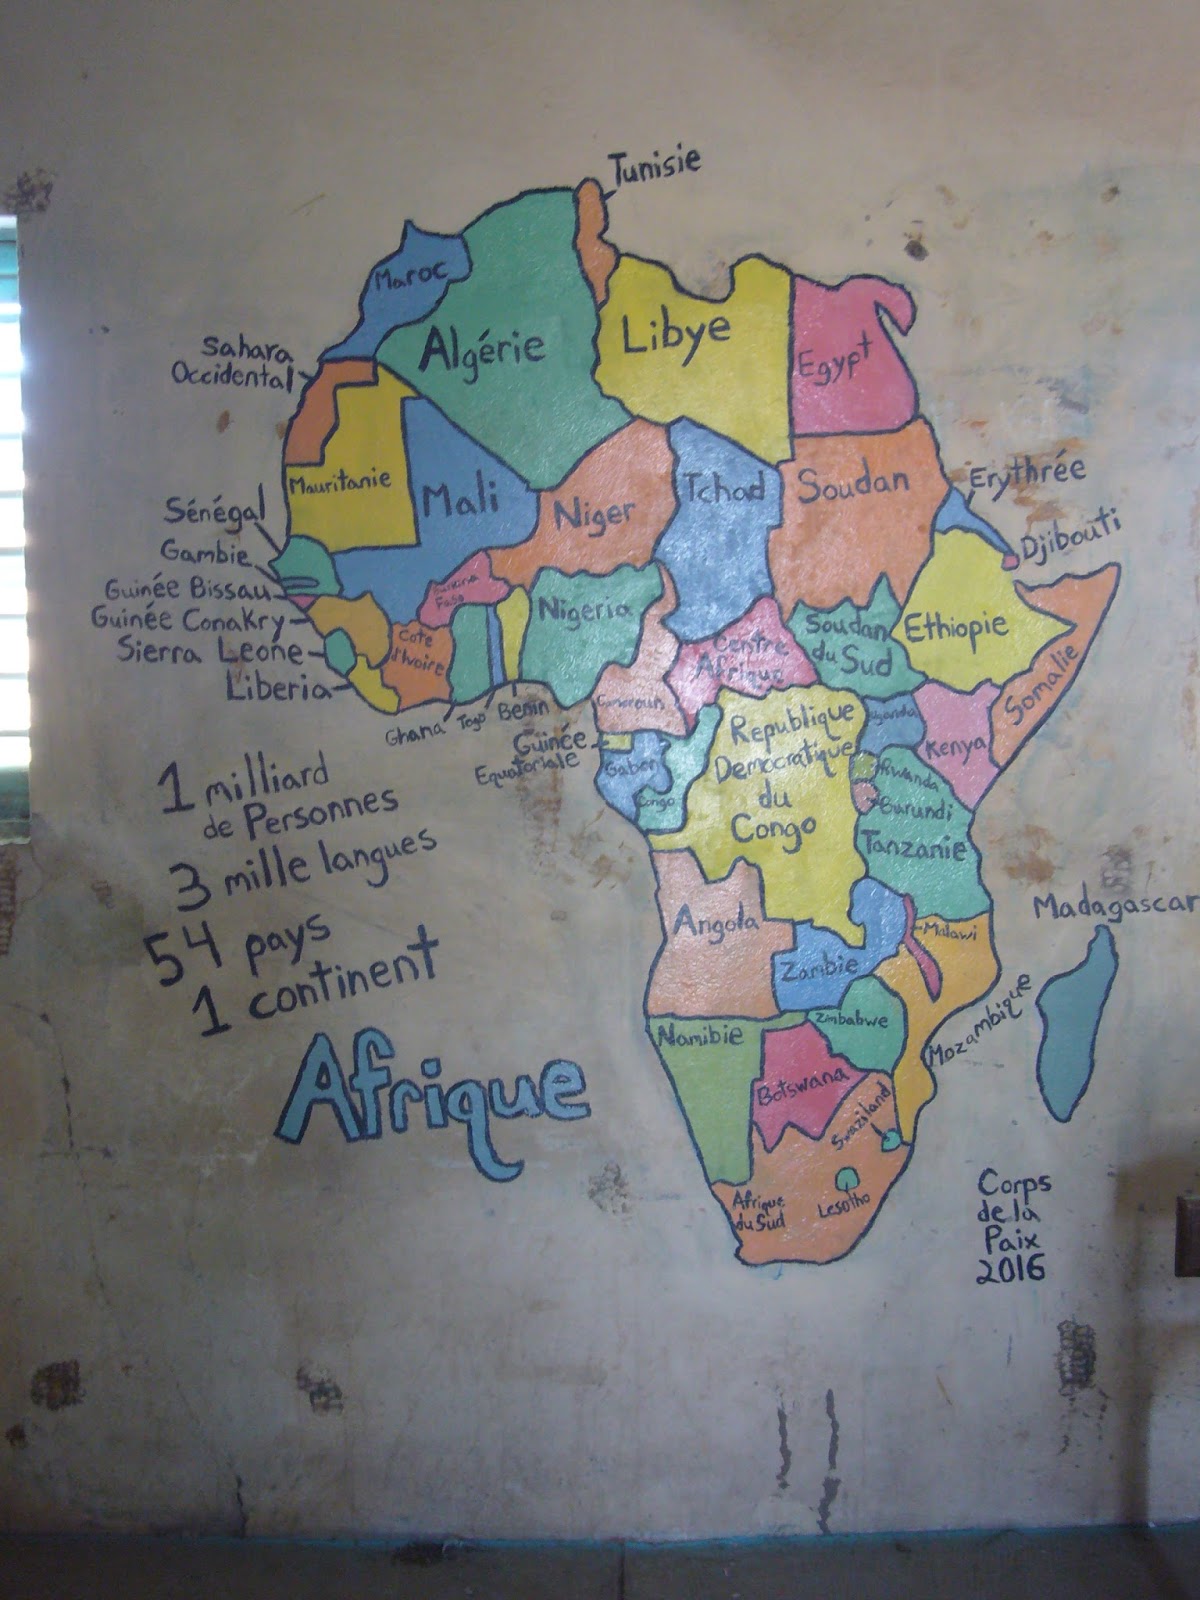 Tunisie
Maroc
Algérie
Libye
Egypt
Sahara
Occidental
Mauritanie
Mali
Niger
Tchad
Soudan
Erythrée
Djibouti
Sénégal
Gambie
Guinée Bissau
Guinée Conakry
Sierra Leone
Liberia
Burkina
Faso
Cote
d'Ivoire
Ghana
Togo
Benin
Nigeria
Cameroun
Centre
Afrique
Soudan
du Sud
Ethiopie
Somalie
Guinée
Equatoriale
Gabon
Congo
Republique
Democratique
du
Congo
Uganda
Kenya
Rwanda
Burundi
Tanzanie
Angola
Zambie
Malawi
Mozambique
Madagascar
Namibie
Zimbabwe
Botswana
Swaziland
Lesotho
Afrique
du Sud
1 milliard
de Personnes
3 mille langues
54 pays
1 continent
Afrique
Corps
de la
Paix
2016